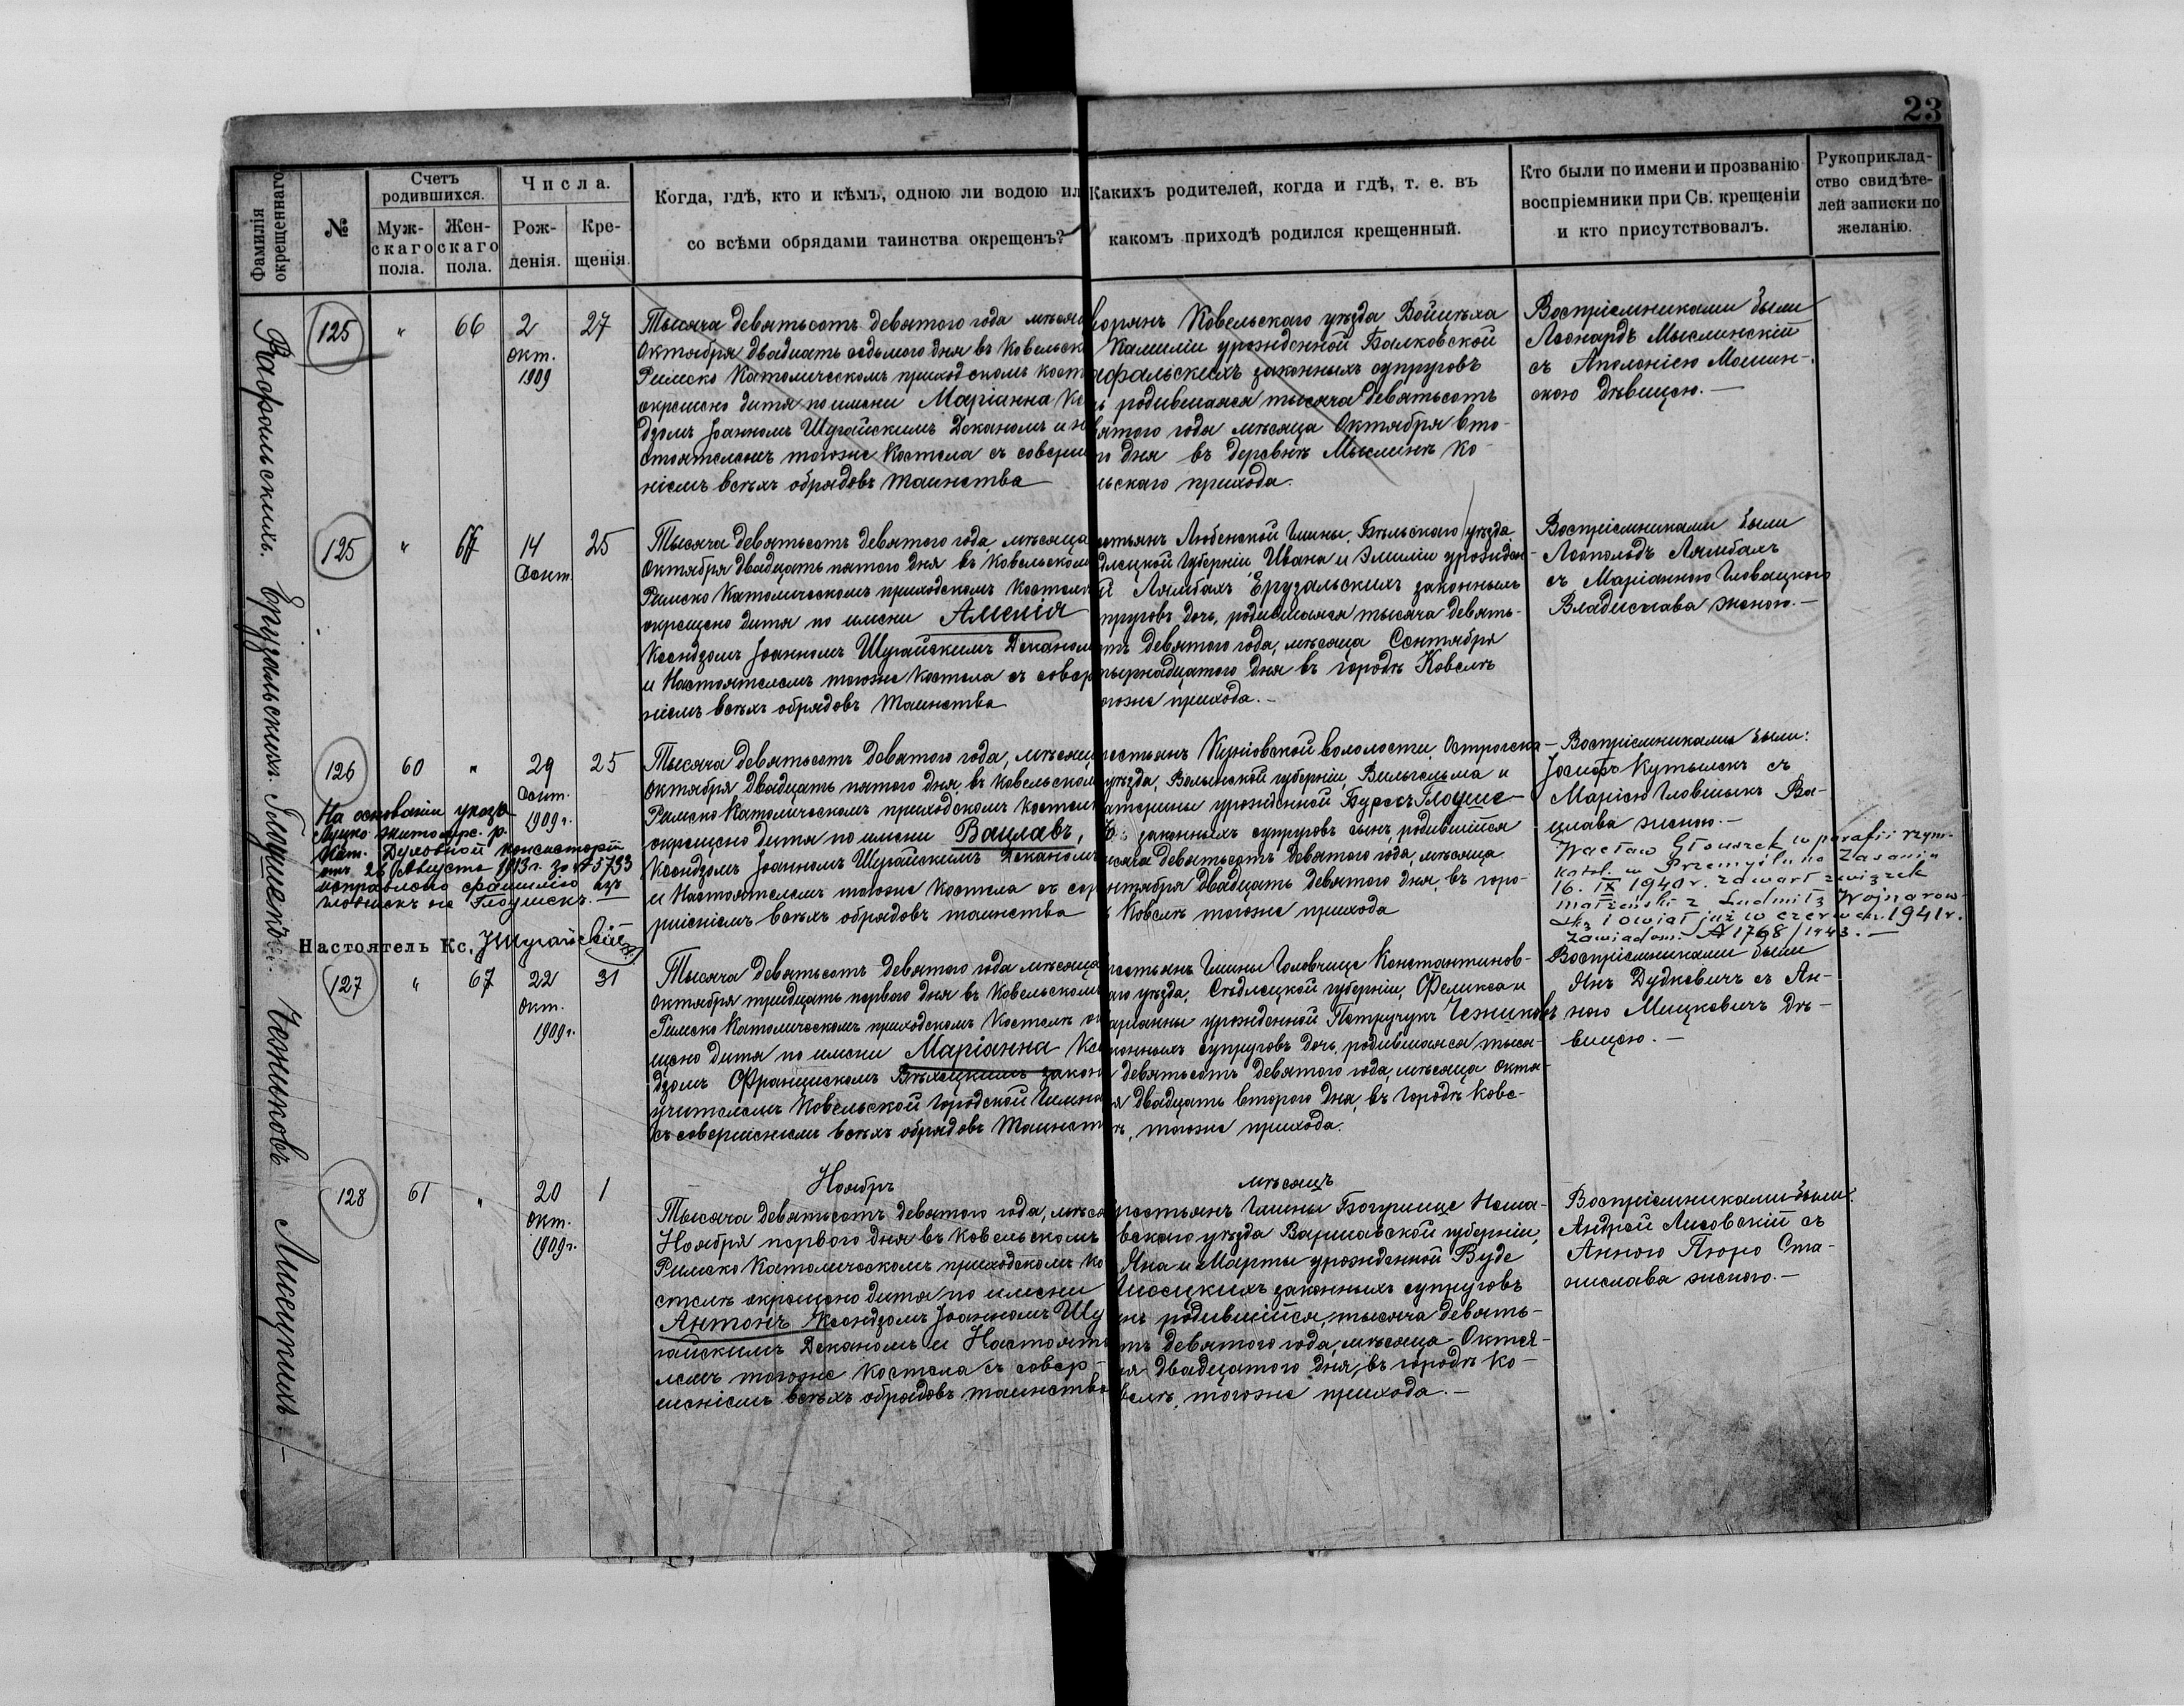 23
Фамилія окрещеннаго.
№
Счетъ родившихся.
Муж-скаго пола.
Жен-скаго пола.
Числа.
Рож-денія.
Кре-щенія.
Когда, гдѣ, кто и кѣмъ, одною ли водою ил
со всѣми обрядами таинства окрещенъ?
Какихъ родителей, когда и гдѣ, т. е. въ
какомъ приходѣ родился крещенный.
Кто были по имени и прозванію
воспріемники при Св. крещеніи
и кто присутствовалъ.
Рукоприклад-
ство свидѣте-
лей записки по
желанію.
Рафальскихъ.
125 " 66 2 окт. 1909 27
Тысяча девятьсотъ девятого года мѣсяц
Октября двадцать седьмого дня въ Ковельско
Римско Католическомъ приходскомъ кост
окрещено дитя по имени Маріанна Кс
дзомъ Іоанномъ Шугайскимъ Деканомъ и н
стоятелемъ тогоже Костела съ соверш
ніемъ всѣхъ обрядовъ Таинства
ворянъ Ковельскаго уѣзда Войцѣха
Камиліи урожденной Балковской
афальскихъ законныхъ супруговъ
ь родившаяся тысяча девятьсотъ
вятого года мѣсяца Октября вто-
го дня въ деревнѣ Мыслинѣ Ко-
льскаго прихода.
Воспріемниками были
Леонардъ Мыслинскій
съ Аполоніею
скою дѣвицею.—
Ерузальскихъ.
125 " 67 14 Сент. 25
Тысяча девятьсотъ девятого года, мѣсяца
Октября двадцать пятого дня въ Ковельском
Римско Католическомъ приходскомъ Костел
окрещено дитя по имени Аменія
Ксендзомъ Іоанномъ Шугайскимъ Деканом
и Настоятелемъ тогоже Костела съ совер
ніемъ всѣхъ обрядовъ Таинства
естьянъ Любенской Гмины, Бѣльскаго уѣзда
длецкой Губерніи Ивана и Эмиліи урожден-
й Лямбахъ Ерузальскихъ законныхъ
пруговъ дочь, родившаяся тысяча девять-
тъ девятого года, мѣсяца Сентября
тырнадцатого дня въ городѣ Ковелѣ
гоже прихода.—
Воспріемниками были
Леопольдъ Лямбахъ
съ Маріанною Гловацкого
Владислава женою.—
Глоушекъ.
126 60 " 29 Сент. 1909 г. 25
Тысяча девятьсотъ девятого года, мѣсяц
Октября двадцать пятого дня, въ Ковельском
Римско Католическомъ приходскомъ Костел
окрещено дитя по имени Вацлавъ,
Ксендзомъ Іоанномъ Шугайскимъ Деканомъ
и Настоятелемъ тогоже Костела съ сов
ршеніемъ всѣхъ обрядовъ таинства
рестьянъ волости, Острогска-
уѣзда, Волынской губерніи, Вильгельма и
атерины урожденной Бурекъ Глоуше-
законныхъ супруговъ сынъ, родившійся
ысяча девятьсотъ девятого года, мѣсяца
нтября двадцать девятого дня, въ горо-
ѣ Ковелѣ тогоже прихода
Воспріемниками были:
Іосифъ Кутылекъ съ
Маріею Гловшекъ Ва-
цлава женою.—
Wacław Głouszek w parafii rzym.
katol. w Przemyślu na Zasaniu
16. IX 1940 r. zawarł związek
małżeński z Ludmiłą Wojnarow-
ską i 1941 r.
Zawiadom. № 1768/1943.—
На основаніи указа
Луцко-Житомирс. р.
Кат. Духовной Консисторіи
отъ 26 Августа 1913 г. за № 5733
исправлено фамилію изъ
Гловшекъ на Глоушекъ.—
Настоятель Кс. Шугайскій
Чезниковъ
127 " 67 22 окт. 1909 г. 31
Тысяча девятьсотъ девятого года мѣсяца
Октября тридцать первого дня въ Ковельском
Римско Католическомъ приходскомъ Костелѣ ок
щено дитя по имени Маріанна Ксе
дзомъ Францискомъ законо
учителемъ Ковельской Городской Гимна
съ совершеніемъ всѣхъ обрядовъ Таинств
рестьянъ Гмины Головчице Константинов-
аго уѣзда, Сѣдлецкой губерніи, Феликса и
аріанны урожденной Петручукъ Чезниковъ
конныхъ супруговъ дочь, родившаяся тыся-
девятьсотъ девятого года, мѣсяца Октя-
я двадцать второго дня, въ городѣ Кове-
ѣ, тогоже прихода.
Воспріемниками были
Янъ Дудкевичъ съ Ан-
ною Мицкевичъ дѣ-
вицею.—
Лисецкихъ.—
Ноябрь
мѣсяцъ
128 61 " 20 окт. 1909 г. 1
Тысяча девятьсотъ девятого года, мѣся
Ноября первого дня въ Ковельскомъ
Римско Католическомъ приходскомъ Ко
стелѣ окрещено дитя по имени
Антонъ Ксендзомъ Іоанномъ Шу
гайскимъ Деканомъ и Настояте
лемъ тогоже Костела съ совер-
шеніемъ всѣхъ обрядовъ таинства
рестьянъ Гмины
вскаго уѣзда Варшавской губерніи,
Яна и Марты урожденной Вуде
Лисецкихъ законныхъ супруговъ
нъ родившійся, тысяча девять-
тъ девятого года, мѣсяца Октя-
ря двадцатого дня, въ городѣ Ко-
велѣ, тогоже прихода.—
Воспріемниками были:
Андрей Лисовскій съ
Анною Пюро Ста-
нислава женою.—